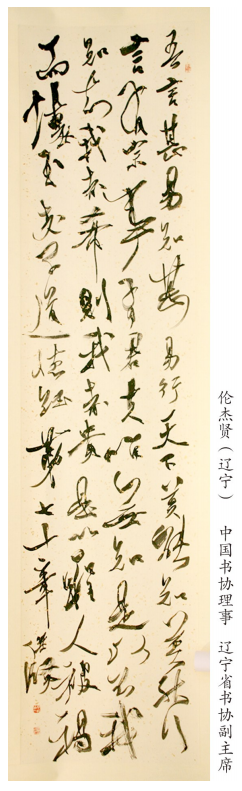 吾言甚易知甚易行天下莫能知莫能行
言有宗事有君夫唯無知是以不我
知知我者希則我者貴是以聖人被褐
而懷玉老子道德經第七十章
伦杰贤（辽宁） 中国书协理事 辽宁省书协副主席